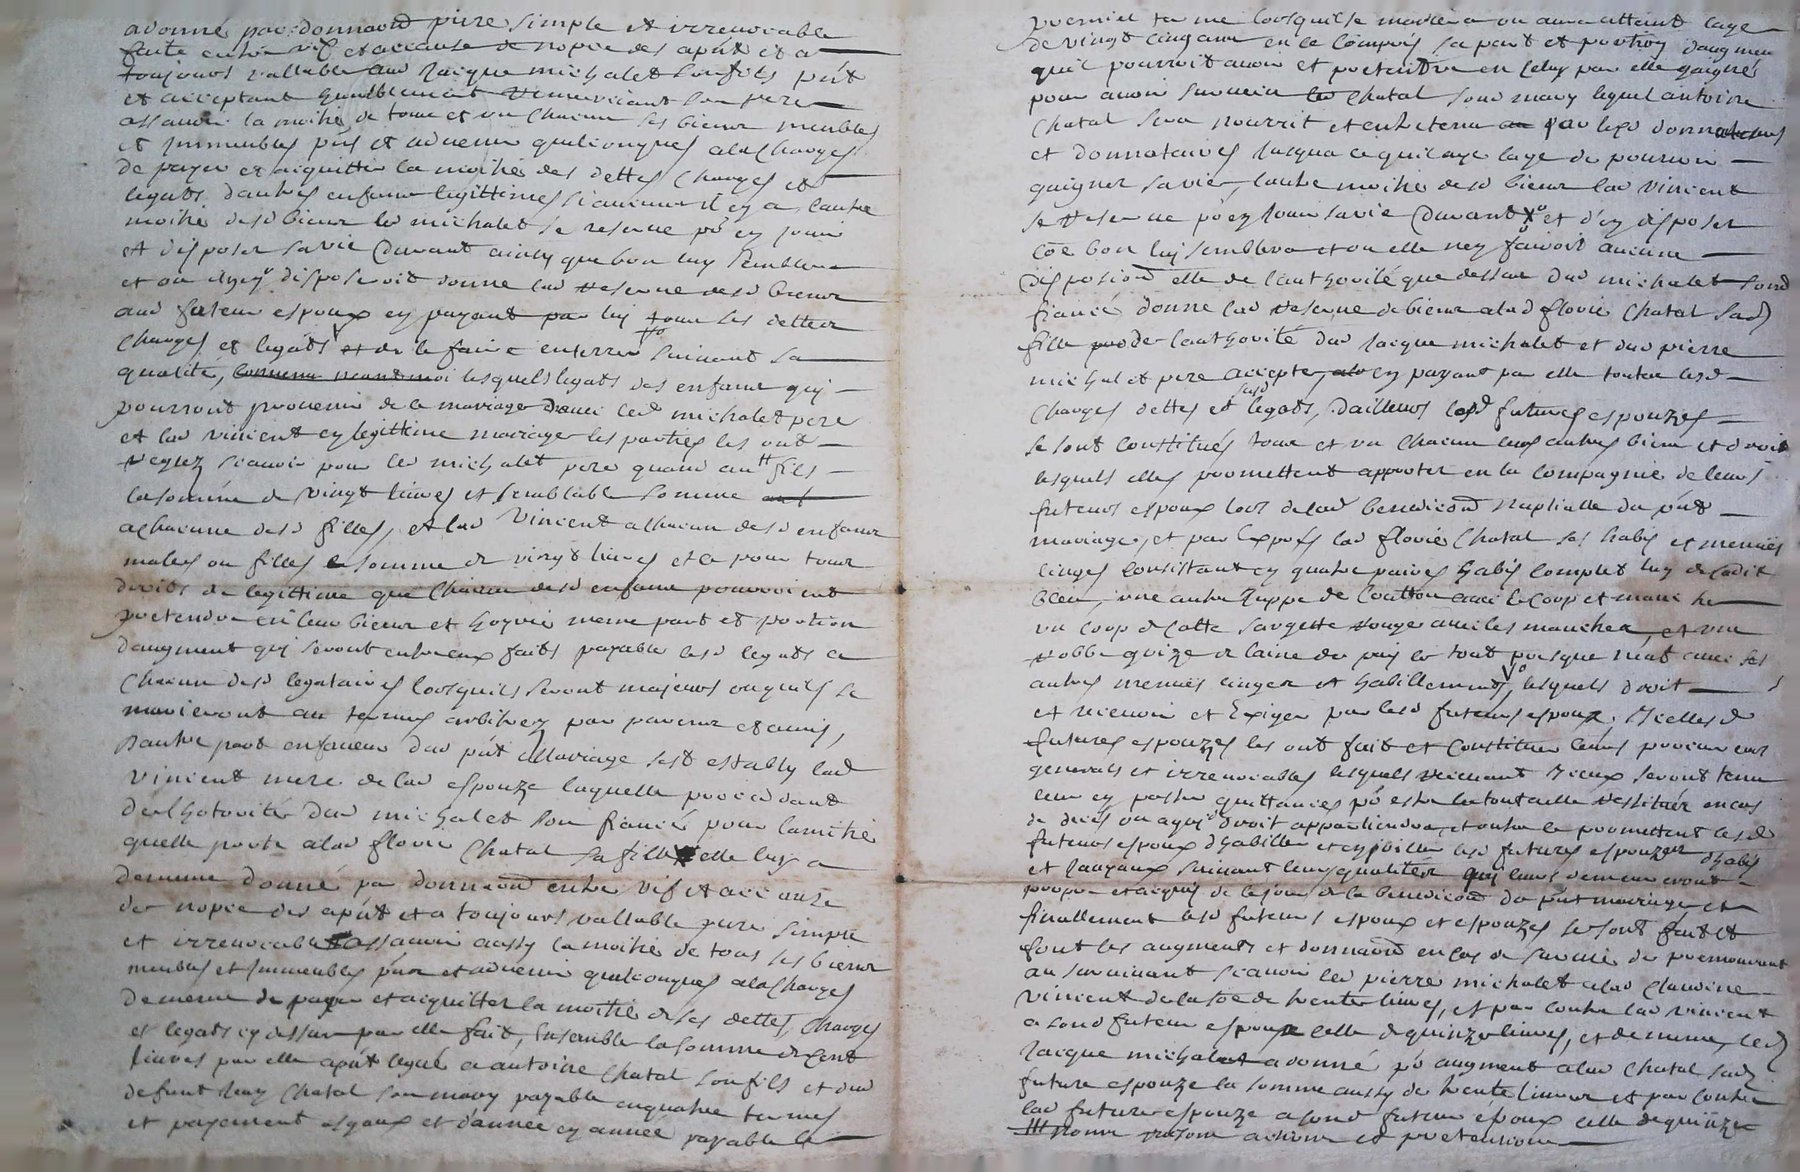 a donné par donnaōn pure simple et irrevocable
faite entre vifs et accause de nopce des apñt et a
toujours vallable aud Jacque michalet son fils pñt
et acceptant humblement remerciant son pere
assavoir la moitié de tous et un chacun ses biens meubles
et immeubles pñs et advenir quelconques a la charge
de payer et aiquitter la moitié des dettes charges et
legats dautres enfans legittimes si aucuns il y a, lautre
moitié desd biens led michalet se reserve pō en jouir
et disposer sa vie durant ainsy que bon luy semblera
et ou il n'en disposeroit donne lad reserve desd biens
aud futeur espoux en payant par luy tous ses dettes
charges et legats et de le faire enterrer suivant sa
qualité, lesquels legats des enfans qui
pourront provenir de ce mariage avec led michalet pere
et lad vincent en legittime mariage les parties les ont
reglez scavoir pour led michalet pere quand aux fils
la somme de vingt livres et semblable somme
a chacune desd filles, et lad Vincent a chacun desd enfans
males ou filles la somme de vingt livres et ce pour tous
droits de legittime que chacun desd enfans pouroient
pretendre en leur biens et hoyrie meme part et portion
daugment qui seront entre eux faits payable lesd legats a
chacun desd legataires lorsquils seront majeurs ou quils se
marieront au termes arbitrez par parens et amis,
Dautre part en faveur dud pñt Mariage sest estably lad
Vincent mere de lad espouze laquelle procedant
de lhotorité dud michalet son fiancé pour lamitié
quelle porte a lad florie Chatal sa fille elle luy a
de meme donné par donnaōn entre vif et accause
de nopce des apñt et a toujours vallable pure simple
et irrevocable assavoir aussy la moitié de tous ses biens
meubles et immeubles pñs et advenir quelconques a la charge
de meme de payer et aiquitter la moitié de ses dettes, charges
et legats cy dessus par elle fait, ensemble la somme de cent
livres par elle apñt legué a antoine Chatal son fils et dud
defunt Jean Chatal son mary payable en quatre termes
et payement esgaux et dannée en année payable le
premier terme lorsquil se mariera ou aura atteint lage
de vingt cinq ans en ce compris sa part et portion daugment
quil pourroit avoir et pretendre en celuy par elle gaigné
pour avoir survecu led Chatal son mary lequel antoine
Chatal sera nourrit et entretenu par lesd donnateurs
et donnataires jusqua ce quil aye lage de pouvoir
gaigner sa vie, lautre moitié desd biens lad vincent
se reserve pō en jouir sa vie durant et d'en disposer
cōe bon luy semblera et ou elle n'en fairoit aucune
disposiōn elle de l'authorité que dessus dud michalet son
fiancé donne lad reserve de biens a lad florie Chatal sad
fille de lauthorité dud Jacque michalet et dud pierre
michalet pere accepte, en payant par elle toutes lesd
charges dettes et legats, dailleurs lesd futures espouzes
se sont constitués tous et un chacun leurs autres biens et droits
lesquels elles promettent apporter en la compagnie de leurs
futeurs espoux lors de lad benediciōn nuptialle du pñt
mariage, et par exprès lad florie Chatal ses habis et menues
linges consistant en quatre paires habis complet luy de cadit
bleu, une autre juppe de coutton avec le corp et manche
un corp de catte sargette rouge avec les manches, et une
robbe grize de laine du pays le tout presque neuf avec ses
autres menues linges et habillements, lesquels droit
et recevoir et exiger par lesd futeurs espoux. Icelles d
futures espouzes les ont fait et constitués leurs procureurs
generals et irrevocables lesquels recevant iceux seront tenus
leur en passer quittances pō estre le tout a elle restituer en cas
de deces ou a qui de droit appartiendra, et outre ce promettent lesd
futeurs espoux dhabiller et enjoueller lesd futures espouzes dhabis
et jouyaux suivant leurs qualités qui leurs demeureront
propre et acquis de le jour de la benediciōn du pñt mariage et
finallement lesd futeurs espoux et espouzes se sont fait et
font les augments et donnaōn en cas de survie du premourant
au survivant scavoir led pierre michalet a lad Claudine
vincent de la soē de trente livres, et par contre lad vincent
a sond futeur espoux celle de quinze livres, et de meme led
Jacque michalet a donné pō augment a lad Chatal sad
future espouze la somme aussy de trente livres et par contre
lad future espouze a sond futeur epoux celle de quinze
noms raisons actions et pretentions